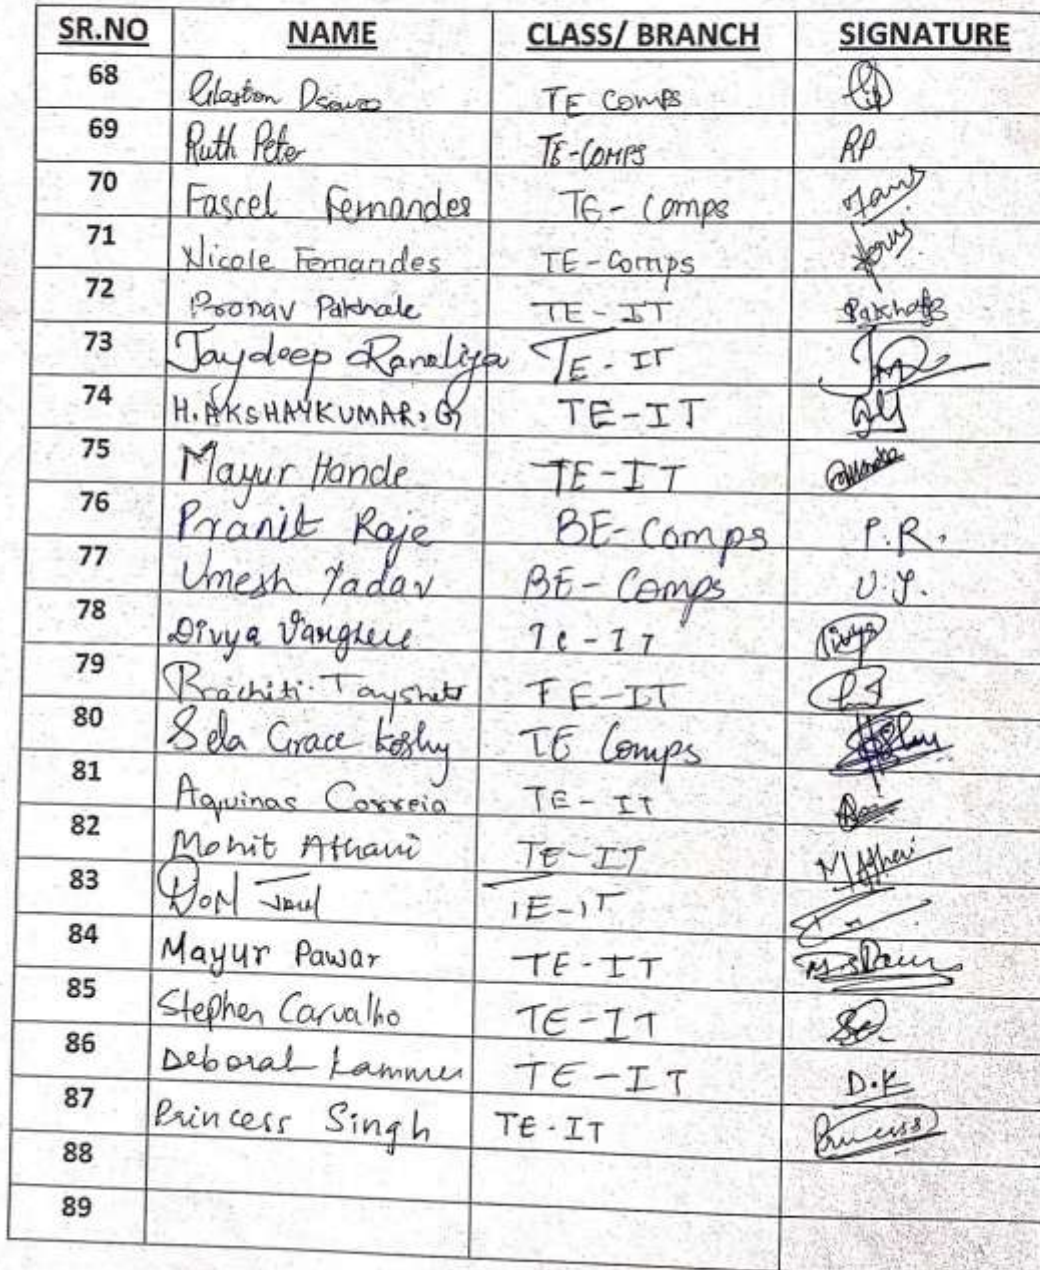 SR.NO NAME CLASS/ BRANCH SIGNATURE
68 Glaston Dsouza TE Comps
69 Ruth Peter TE-COMPS RP
70 Fascel Fernandes TE - Comps
71 Nicole Fernandes TE-Comps
72 Pranav Pakhale TE - IT Pakhale
73 Jaydeep Ranaliya TE - IT
74 H.AKSHAYKUMAR.G TE-IT
75 Mayur Hande TE-IT
76 Pranit Raje BE-Comps P.R.
77 Umesh Yadav BE- Comps U.Y.
78 Divya Varghese TE-IT Divya
79 Prachiti Tayshete TE-IT
80 Sela Grace Koshy TE Comps
81 Aquinas Correia TE- IT
82 Mohit Athani TE-IT
83 DON TE-IT
84 Mayur Pawar TE-IT
85 Stephen Carvalho TE-IT
86 Deborah TE-IT D.K
87 Princess Singh TE-IT Princess
88
89